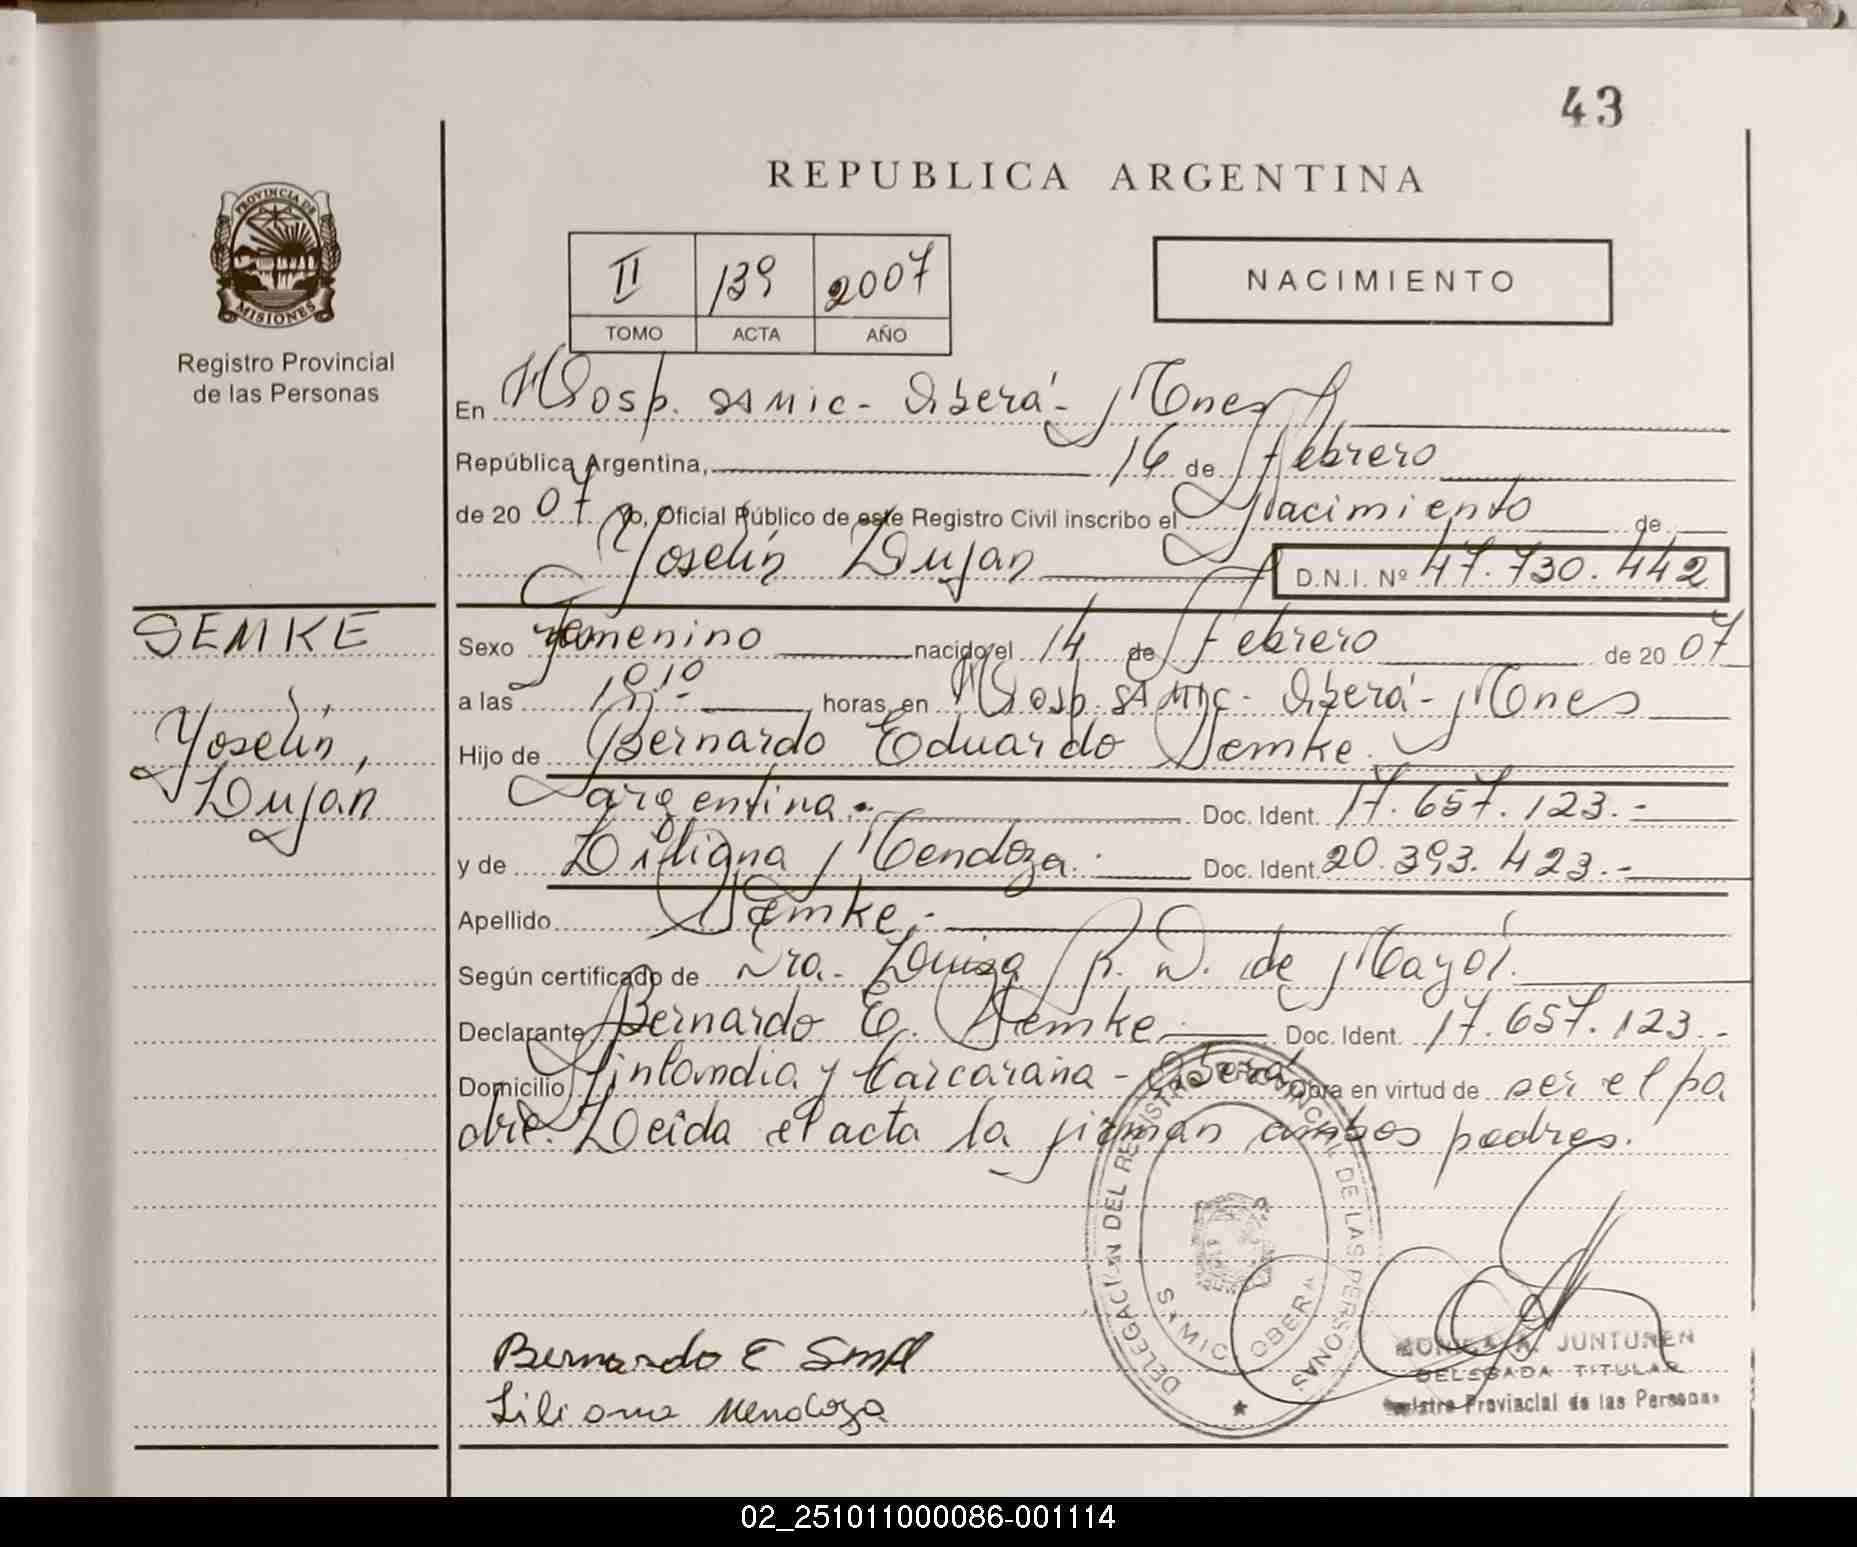 43
REPUBLICA ARGENTINA
PROVINCIA DE
MISIONES
Registro Provincial
de las Personas
II 139 2007
TOMO ACTA AÑO
NACIMIENTO
En Hosp. SAMIC - Oberá - Mnes
República Argentina, 16 de Febrero
de 20 07 Yo, Oficial Público de este Registro Civil inscribo el Nacimiento de
Yoselín Luján D.N.I. Nº 47.730.442
SEMKE
Yoselín,
Luján
Sexo Femenino nacido el 14 de Febrero de 20 07
a las horas, en Hosp. SAMIC - Oberá - Mnes
Hijo de Bernardo Eduardo Semke
argentina.- Doc. Ident. 17.657.123.-
y de Liliana Mendoza. Doc. Ident. 20.393.423.-
Apellido Semke.-
Según certificado de Dra. Luisa R. D. de Mayol.
Declarante Bernardo E. Semke Doc. Ident. 17.657.123.-
Domicilio Finlandia y Carcaraña - Oberá Obra en virtud de ser el pa
dre. Leída el acta la firman ambos padres.
DELEGACION DEL REGISTRO PROVINCIAL DE LAS PERSONAS
SAMIC OBERA
Bernardo E
Liliana Mendoza
MONICA A. JUNTUNEN
DELEGADA TITULAR
Registro Provincial de las Personas
02_251011000086-001114